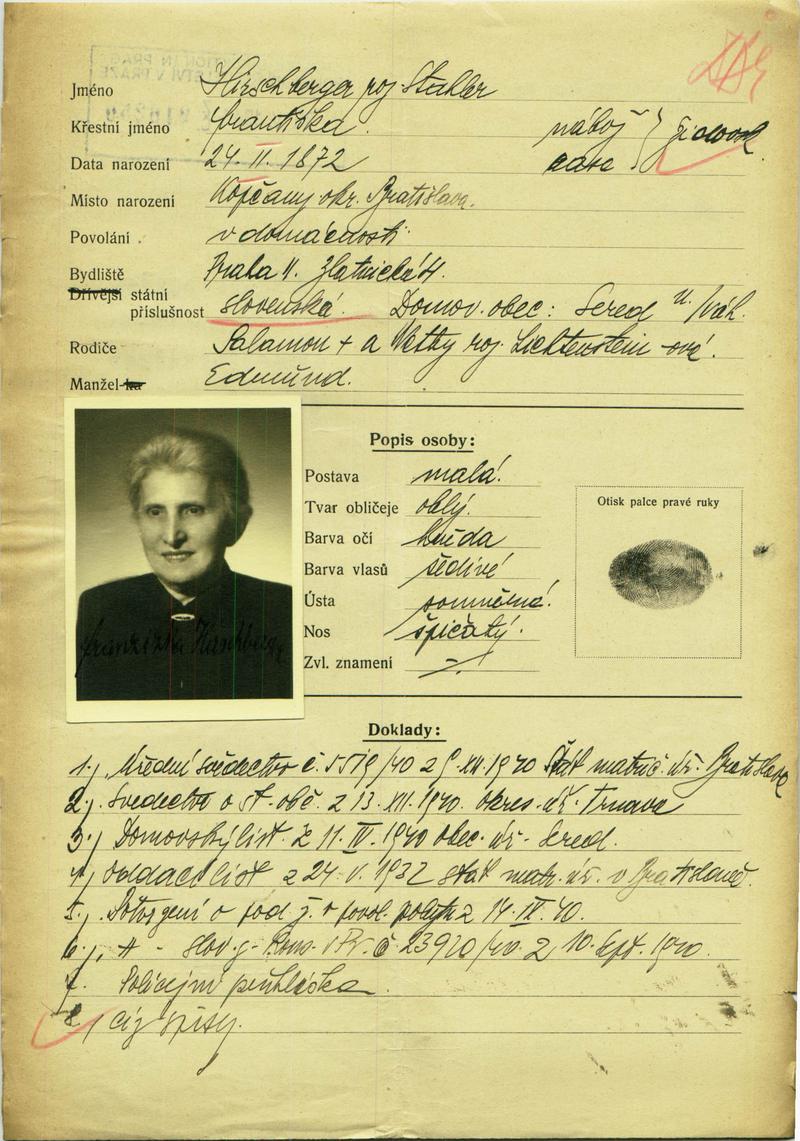 Jméno Hirschberger roz. Stahler
Křestní jméno Františka.
Data narození 24. II. 1872
Místo narození Kopčany okr. Bratislava.
Povolání v domácnosti.
Bydliště Praha II. Zlatnická
Dřívější státní
příslušnost slovenská. Domov. obec: Sered n/Váh.
Rodiče Salamon + a roz. Lichtenstein-ová.
Manžel-ka Edmund.
Popis osoby:
Postava malá.
Tvar obličeje oblý.
Barva očí hnědá
Barva vlasů šedivé
Ústa souměrná.
Nos špičatý.
Zvl. znamení –/.
Otisk palce pravé ruky
Doklady:
1.) Úřední svědectvo č. 5519/40 z 9. XII. 1940 Stát. matrič. úř. Bratislava
2.) Svedectvo o st. obč. z 13. XII. 1940. okres. úř. Trnava
3.) Domovský list z 11. IV. 1940 obec. úř. Sered.
4.) Oddací list z 24. V. 1932 stát. matr. úř. v Bratislavě.
5.) Potvrzení o pobyt z 14. IX. 40.
6.) slov. č. 23920/40 z 10. sept. 1940.
7. Policejní přihláška.
8.) ciz. spisy.